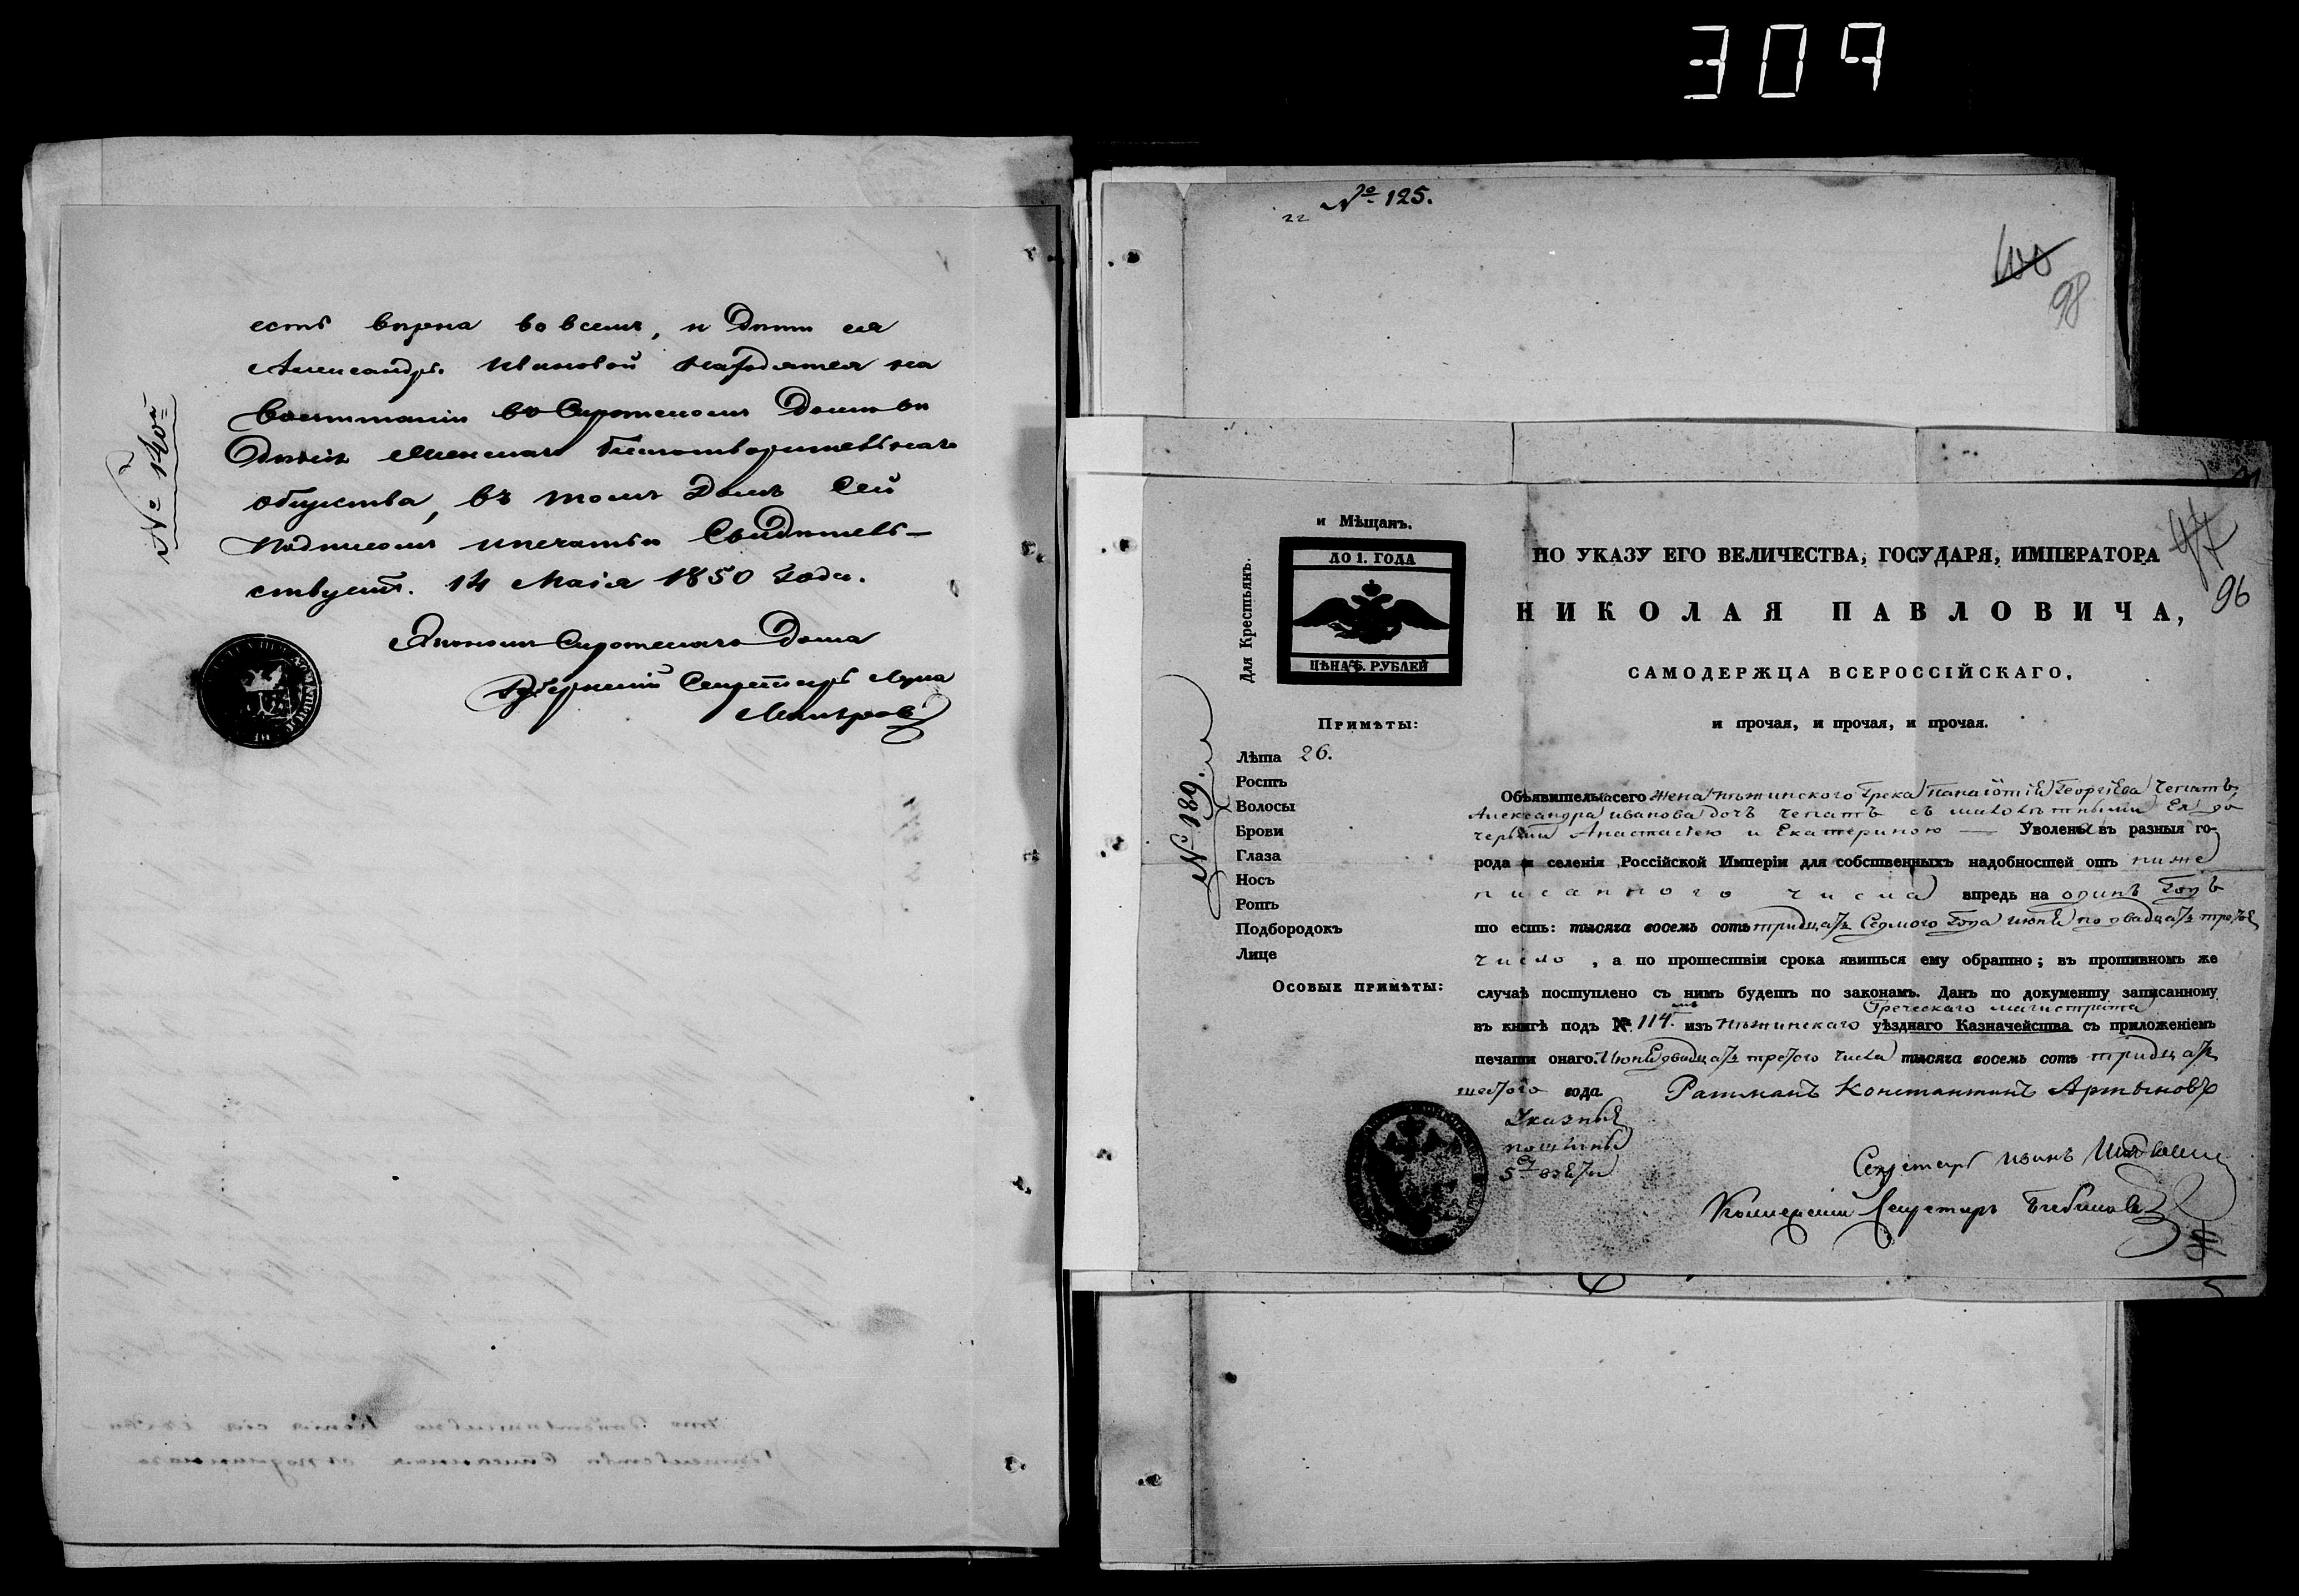 309
есть верна во всемъ, и дети ея
Александры Ивановой находятся на
воспитаніи въ Сиротскомъ Доме для
детей Женскаго благотворительнаго
общества, въ томъ Домъ сей
подписомъ и печатью Свидетель-
ствуетъ. 14 Маія 1850 Года.
№ 140
Экономъ Сиротскаго Дома
Губернскій Секретарь Лука
№ 125.
100
98
97
96
и Мѣщанъ.
Для Крестьянъ.
ДО 1. ГОДА
ЦѢНА 5. РУБЛЕЙ
№ 189.
Примѣты:
Лѣта 26.
Ростъ
Волосы
Брови
Глаза
Носъ
Ротъ
Подбородокъ
Лице
Особые примѣты:
ПО УКАЗУ ЕГО ВЕЛИЧЕСТВА, ГОСУДАРЯ, ИМПЕРАТОРА
НИКОЛАЯ ПАВЛОВИЧА,
САМОДЕРЖЦА ВСЕРОССІЙСКАГО,
и прочая, и прочая, и прочая.
Объявительница сего жена Нѣжинского Грека Панаіотія Георгіева Чепатъ
Александра Иванова дочь Чепатъ съ малолѣтными Ея до
черьми Анастасіею и Екатериною — Уволены въ разныя го-
рода и селенія Россійской Имперіи для собственныхъ надобностей отъ ниже
писанного числа впредь на одинъ Годъ
то есть: тысяча восемь сотъ тридцать Седмого Года июня по двадцать третье
число, а по прошествіи срока явиться ему обратно; въ противномъ же
случаѣ поступлено съ нимъ будетъ по законамъ. Данъ по документу записанному
Греческаго магистрата
въ книгѣ подъ № 114. изъ Нѣжинскаго уѣзднаго Казначейства съ приложеніемъ
печати онаго. Июня двадцать третого числа тысяча восемь сотъ тридцать
шестого года. Ратманъ Константинъ Артыновъ
Указные
пошлины
5 р взяты
Секретарь Иванъ
Коллежскій Секретарь